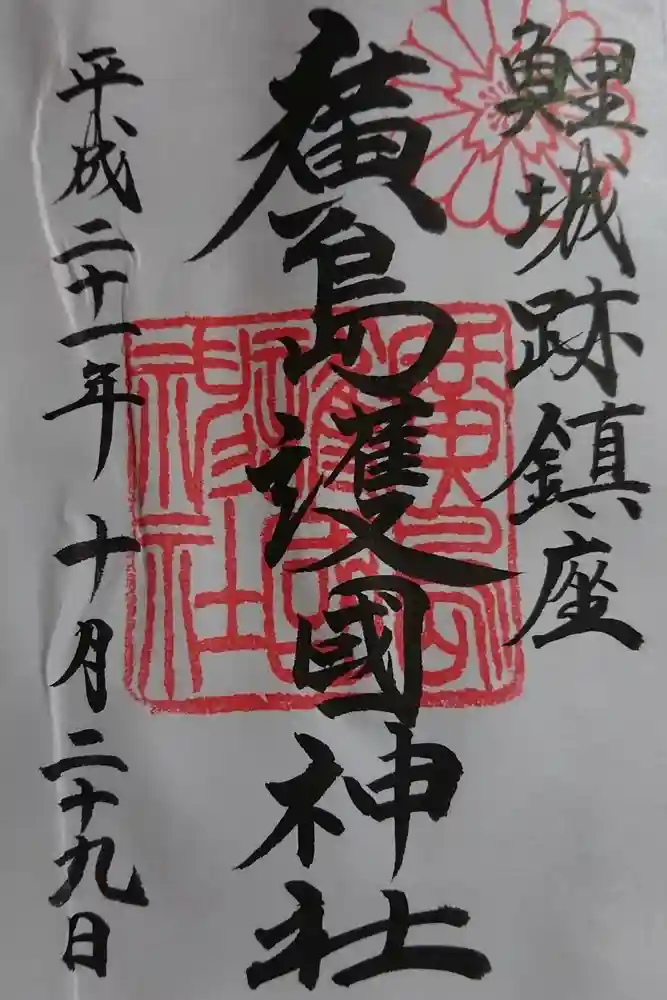 鯉城跡鎮座
廣島護國神社
平成二十一年十月二十九日
廣島護國神社